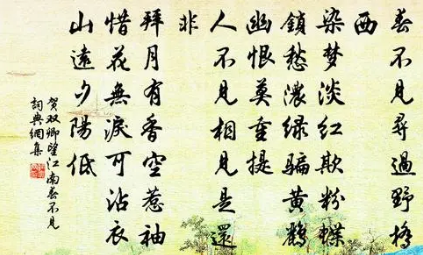 春不見尋過野橋
西
染梦淡紅欺粉蝶
鎖愁濃绿騙黄鸝
幽恨莫重提
人不見相見是還
非
拜月有香空惹袖
惜花無淚可沾衣
山遠夕陽低
賀双卿望江南春不見
詞典網集